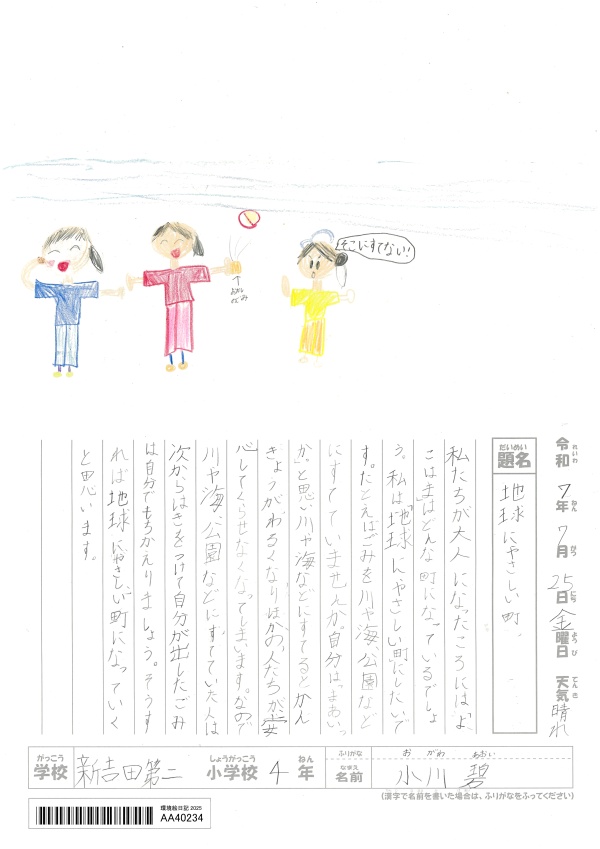 そこにすてない!
おかしのゴミ
令和7年7月25日金曜日 天気晴れ
れいわ ねん がつ にち ようび てんき
題名 地球にやさしい町
だいめい
私たちが大人になったころには「よ
こはま」はどんな町になっているでしょ
う。私は「地球にやさしい町」にしたいで
す。たとえばごみを川や海、公園など
にすてていませんか。自分は「まあいっ
か。」と思い川や海などにすてるとかん
きょうがわるくなり、ほかの、人たちが安
心してくらせなくなってしまいます。なので
川や海、公園などにすてていた人は
次からはきをつけて自分が出したごみ
は自分でもちかえりましょう。そうす
れば「地球にやさしい町」になっていく
と思います。
がっこう しょうがっこう ねん ふりがな おがわ あおい
学校 新吉田第二 小学校 4年 名前 小川 碧
なまえ
(漢字で名前を書いた場合は、ふりがなをふってください)
環境絵日記 2025
AA40234